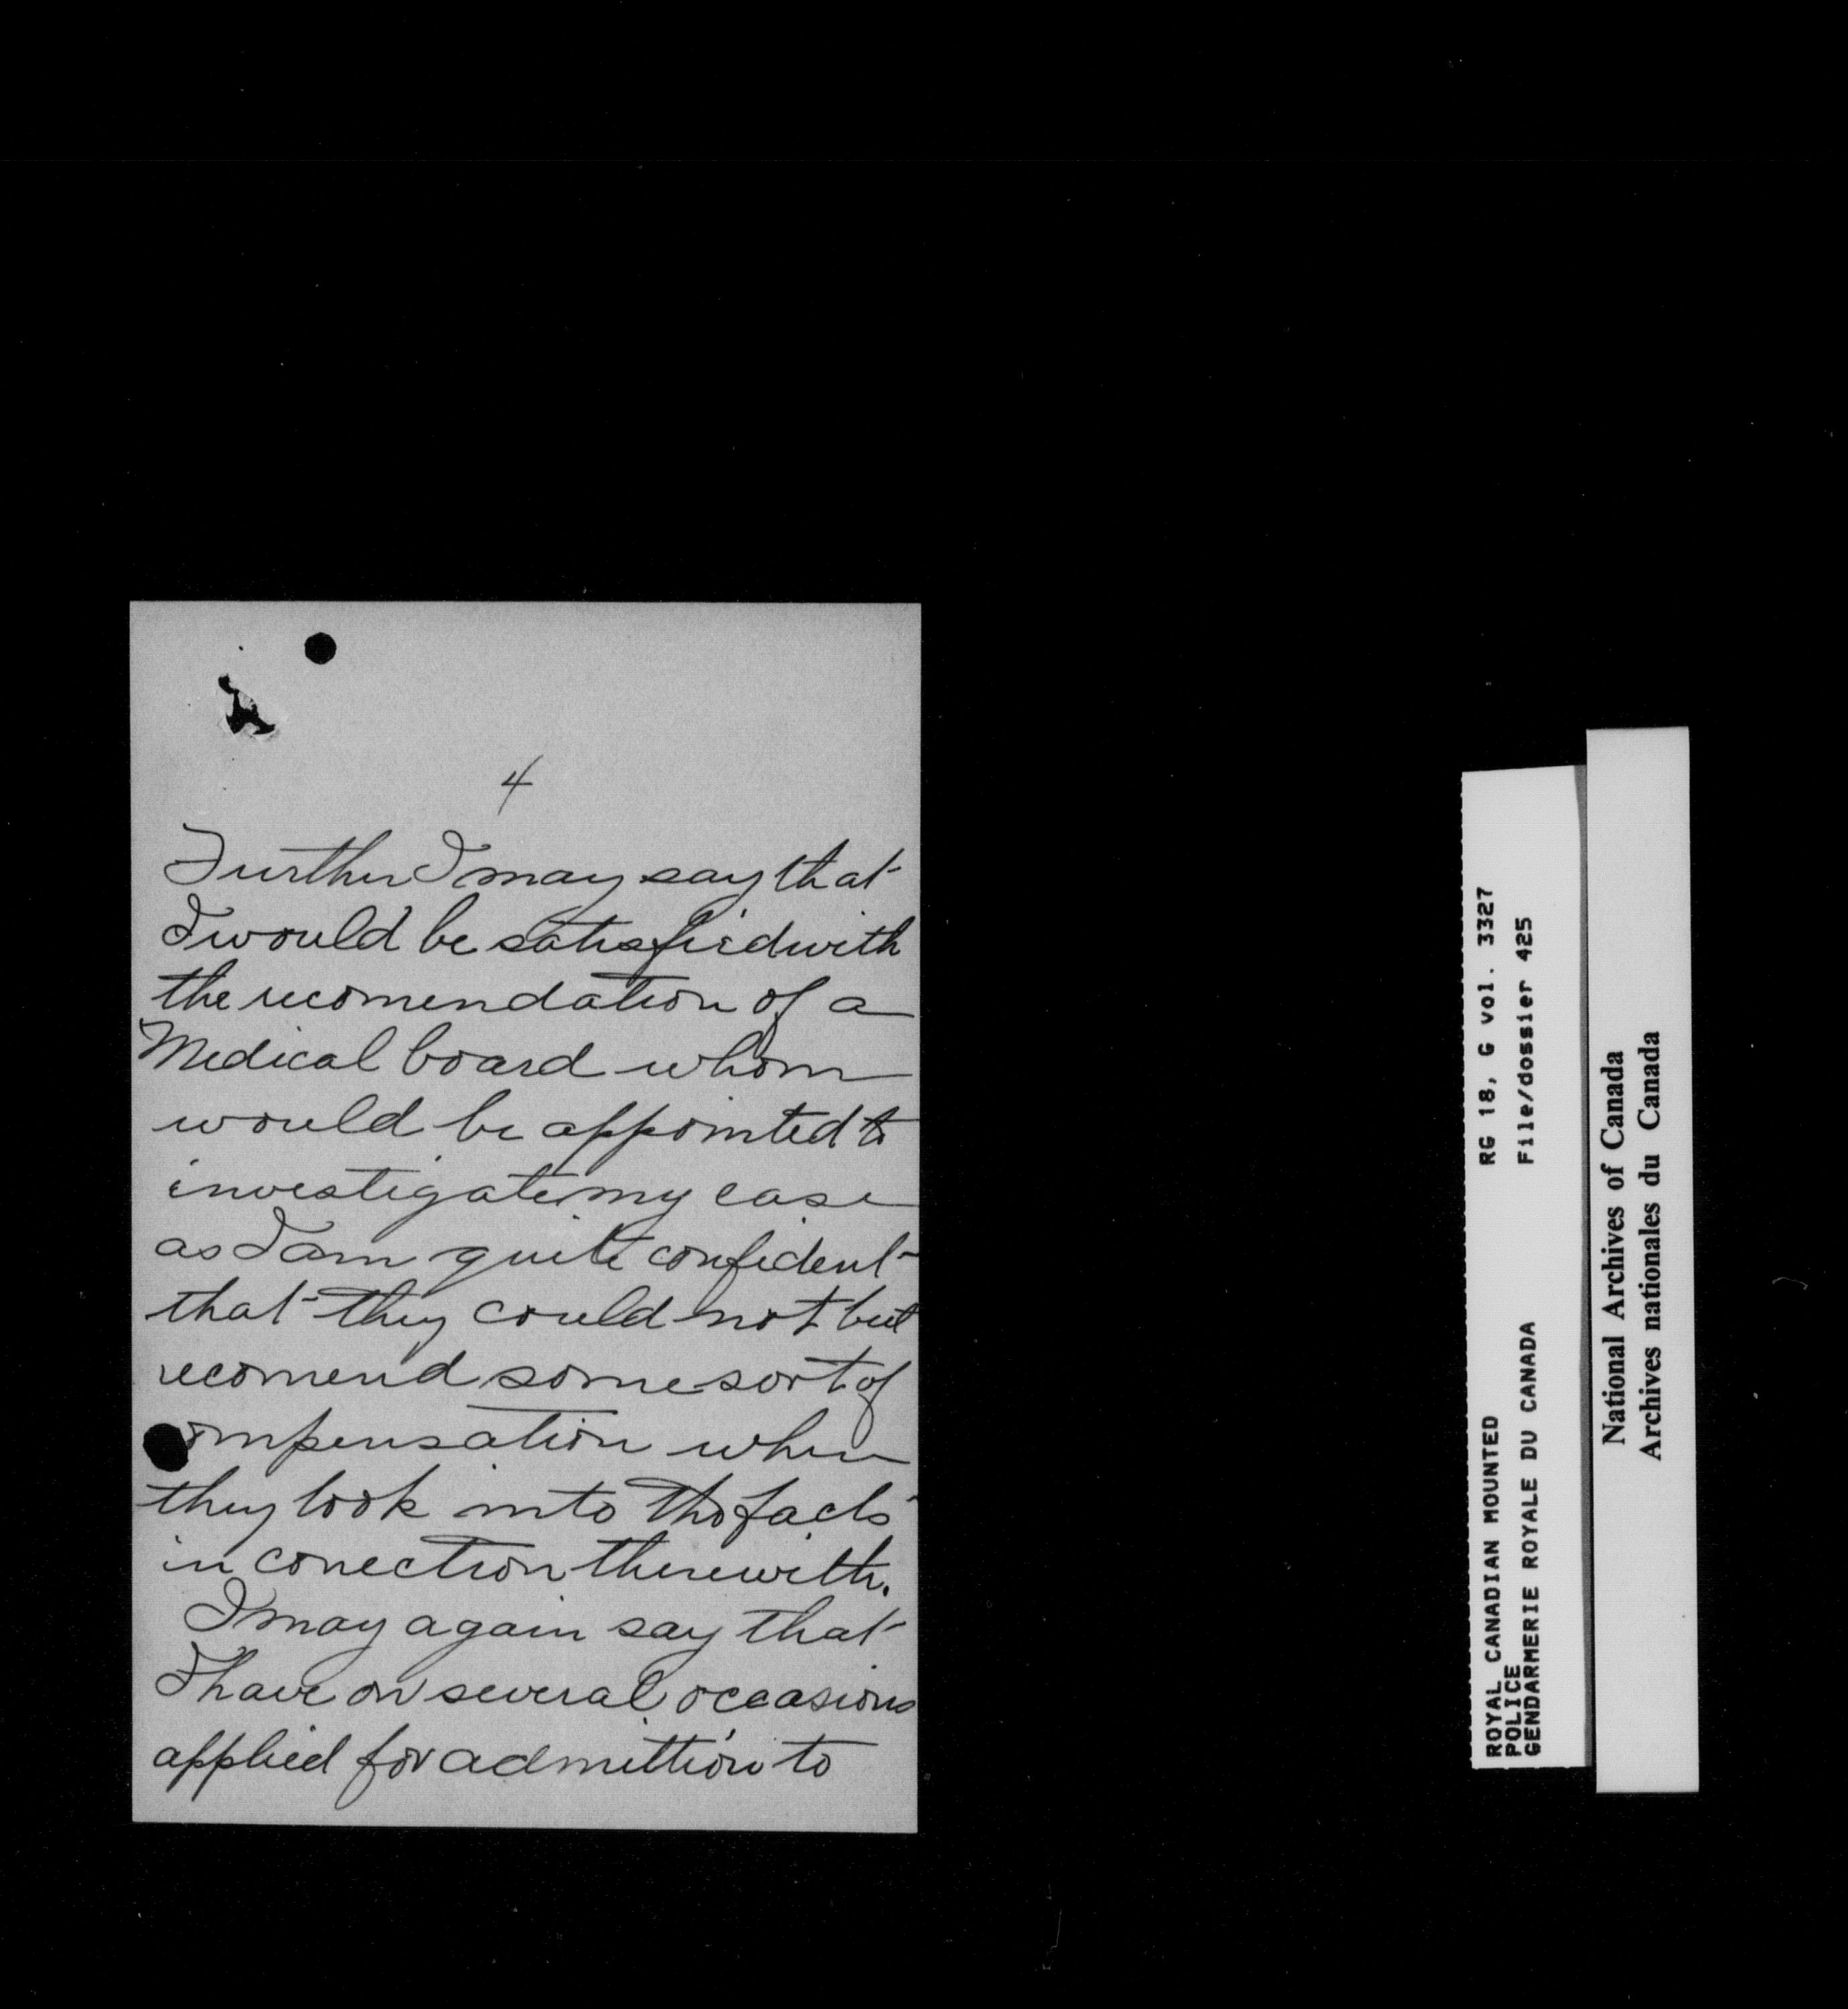 4
Further I may say that
I would be satisfied with
the recomendation of a
Medical board whom
would be appointed to
investigate my case
as I am quite confident
that they could not but
recomend some sort of
ompensation when
they look into the facts
in conection therewith.
I may again say that
I have on several occasions
applied for admittion to
ROYAL CANADIAN MOUNTED
POLICE
GENDARMERIE ROYALE DU CANADA
RG 18, G vol. 3327
File/dossier 425
National Archives of Canada
Archives nationales du Canada